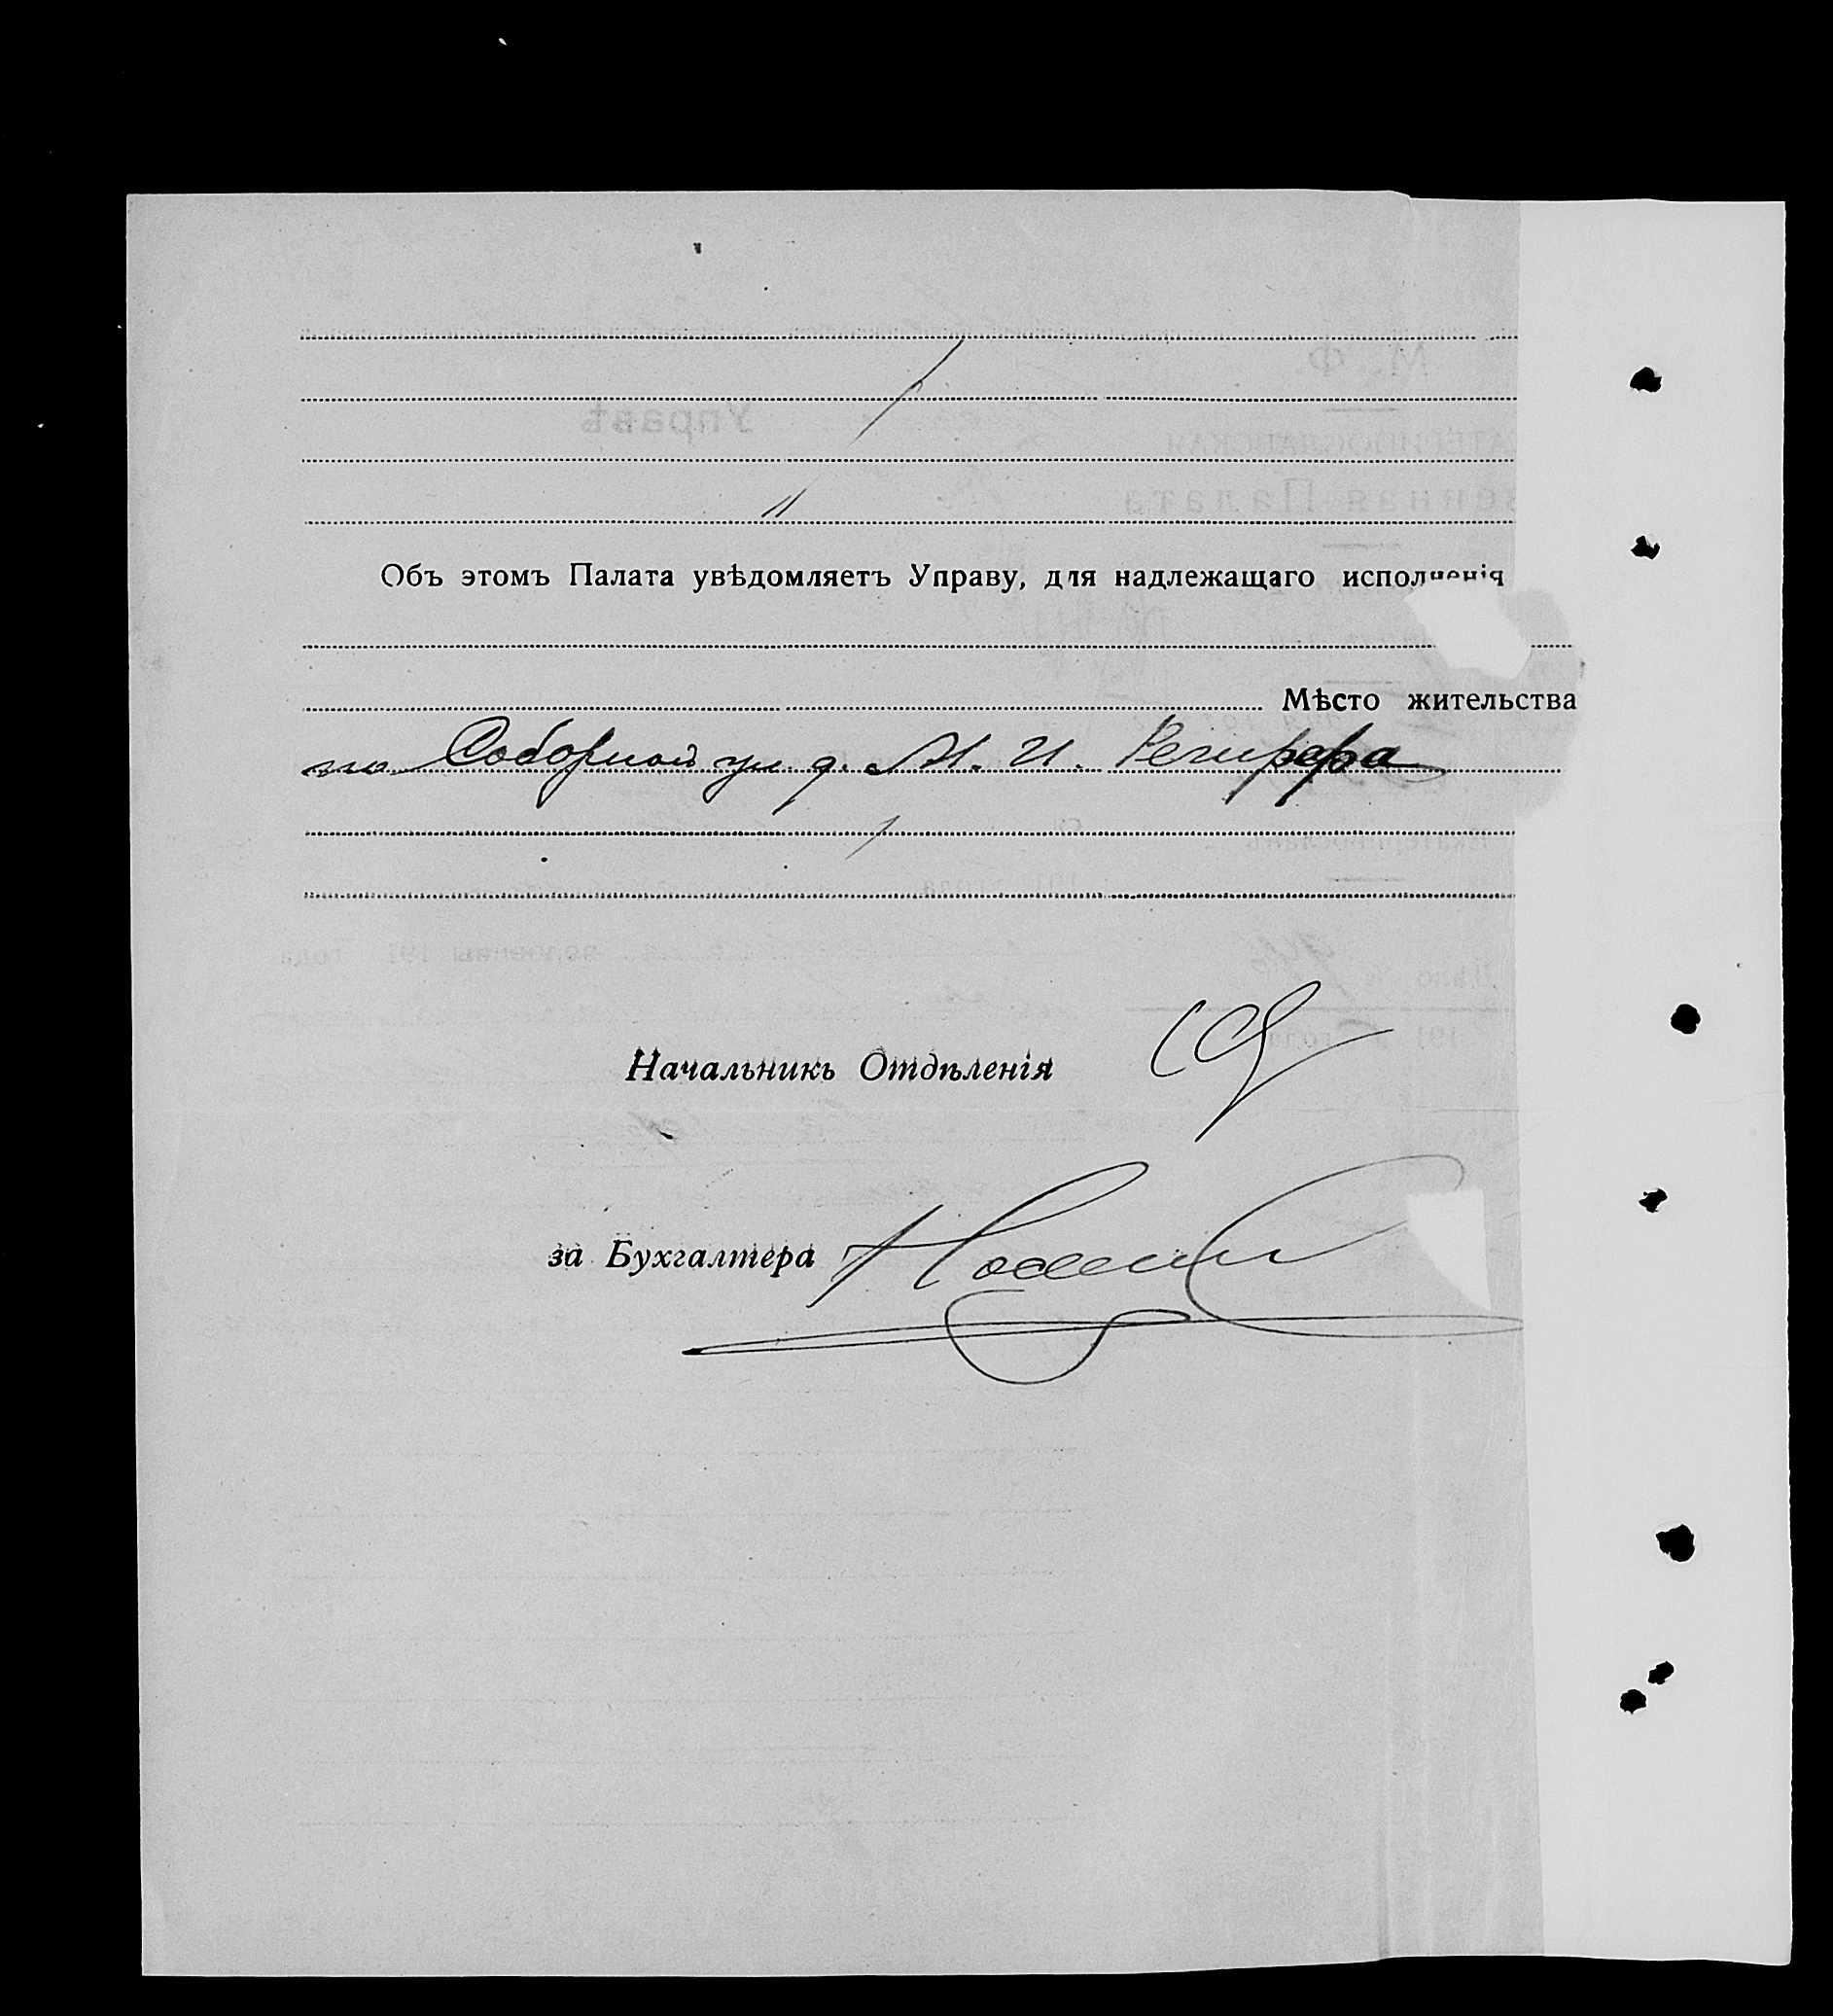 Объ этомъ Палата увѣдомляетъ Управу, для надлежащаго исполненія
Мѣсто жительства
по Соборной ул. д. М. И.
Начальникъ Отдѣленія
за Бухгалтера